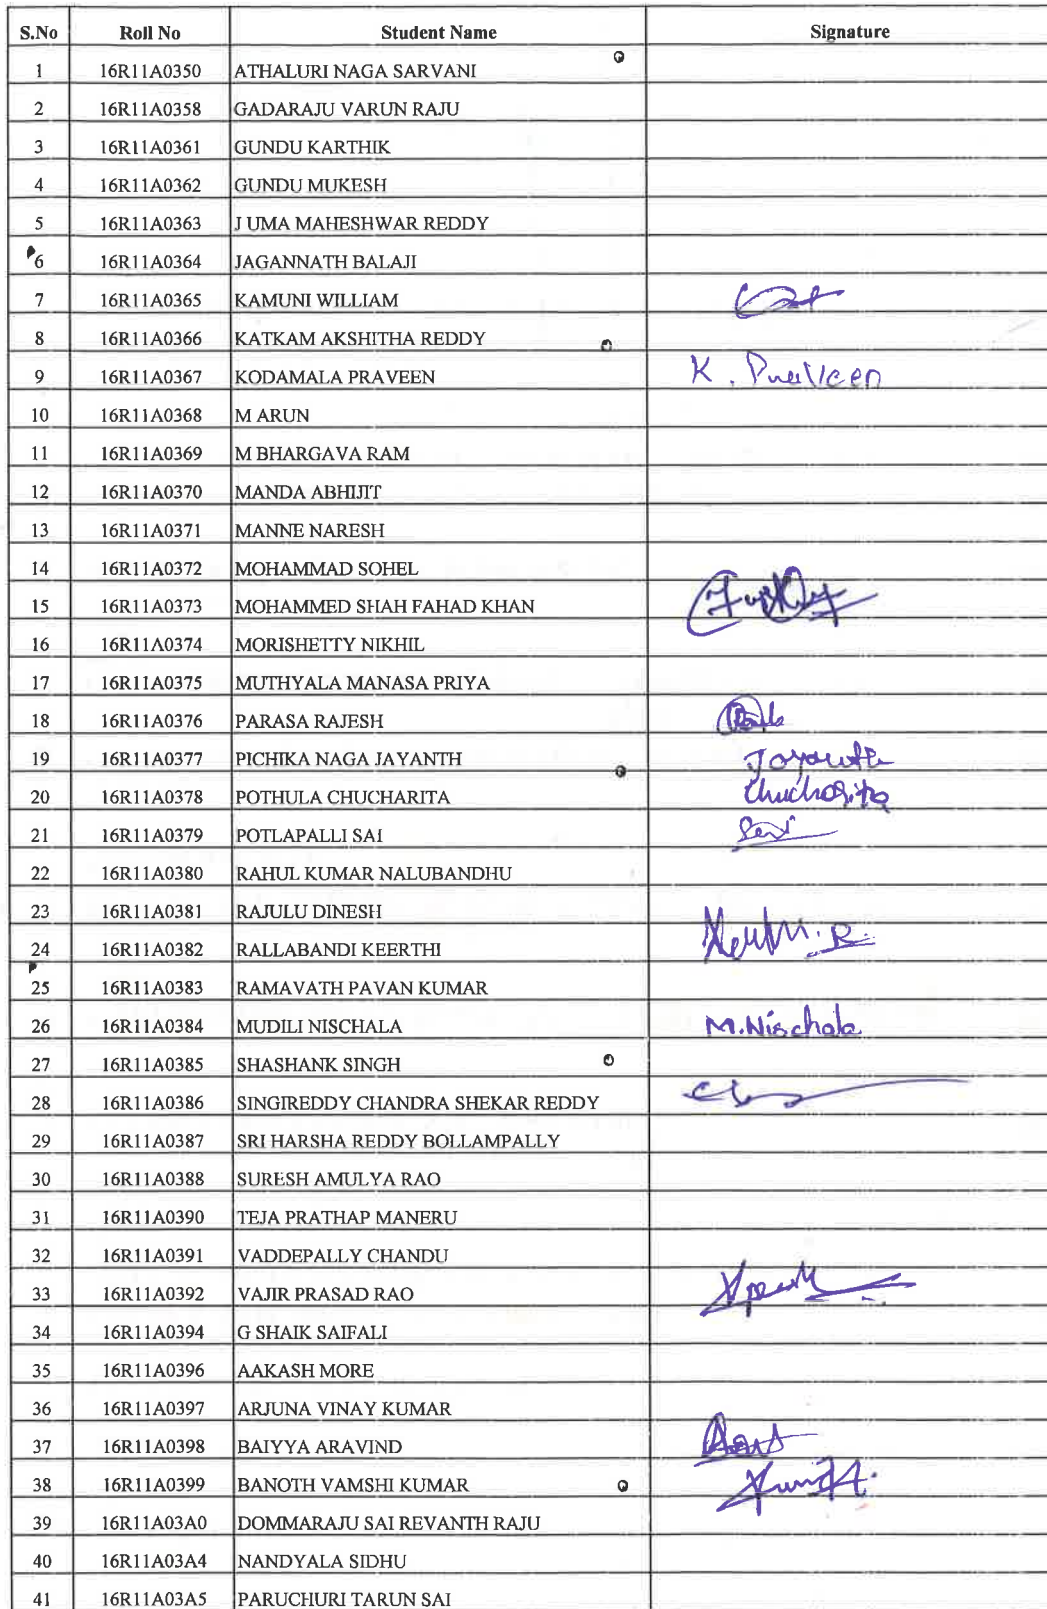 S.No Roll No Student Name Signature
1 16R11A0350 ATHALURI NAGA SARVANI
2 16R11A0358 GADARAJU VARUN RAJU
3 16R11A0361 GUNDU KARTHIK
4 16R11A0362 GUNDU MUKESH
5 16R11A0363 J UMA MAHESHWAR REDDY
6 16R11A0364 JAGANNATH BALAJI
7 16R11A0365 KAMUNI WILLIAM
8 16R11A0366 KATKAM AKSHITHA REDDY
9 16R11A0367 KODAMALA PRAVEEN K. Praveen
10 16R11A0368 M ARUN
11 16R11A0369 M BHARGAVA RAM
12 16R11A0370 MANDA ABHIJIT
13 16R11A0371 MANNE NARESH
14 16R11A0372 MOHAMMAD SOHEL
15 16R11A0373 MOHAMMED SHAH FAHAD KHAN
16 16R11A0374 MORISHETTY NIKHIL
17 16R11A0375 MUTHYALA MANASA PRIYA
18 16R11A0376 PARASA RAJESH
19 16R11A0377 PICHIKA NAGA JAYANTH Jayanth
20 16R11A0378 POTHULA CHUCHARITA Chucharita
21 16R11A0379 POTLAPALLI SAI Sai
22 16R11A0380 RAHUL KUMAR NALUBANDHU
23 16R11A0381 RAJULU DINESH
24 16R11A0382 RALLABANDI KEERTHI
25 16R11A0383 RAMAVATH PAVAN KUMAR
26 16R11A0384 MUDILI NISCHALA M.Nischala
27 16R11A0385 SHASHANK SINGH
28 16R11A0386 SINGIREDDY CHANDRA SHEKAR REDDY
29 16R11A0387 SRI HARSHA REDDY BOLLAMPALLY
30 16R11A0388 SURESH AMULYA RAO
31 16R11A0390 TEJA PRATHAP MANERU
32 16R11A0391 VADDEPALLY CHANDU
33 16R11A0392 VAJIR PRASAD RAO
34 16R11A0394 G SHAIK SAIFALI
35 16R11A0396 AAKASH MORE
36 16R11A0397 ARJUNA VINAY KUMAR
37 16R11A0398 BAIYYA ARAVIND
38 16R11A0399 BANOTH VAMSHI KUMAR
39 16R11A03A0 DOMMARAJU SAI REVANTH RAJU
40 16R11A03A4 NANDYALA SIDHU
41 16R11A03A5 PARUCHURI TARUN SAI